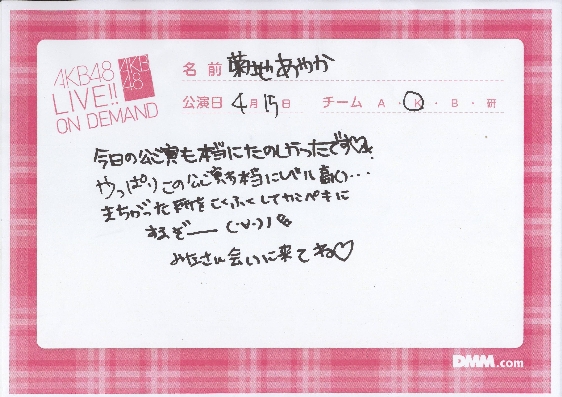 AKB48
LIVE!!
ON DEMAND
AKB
48
名前 菊地あやか
公演日 4月15日 チーム A・K・B・研
今日の公演も本当にたのしかったです♡
やっぱりこの公演は本当にレベル高い...
まちがった所をこくふくしてカンペキに
するぞー (・∀・)ノ
みなさん会いに来てね♡
DMM.com